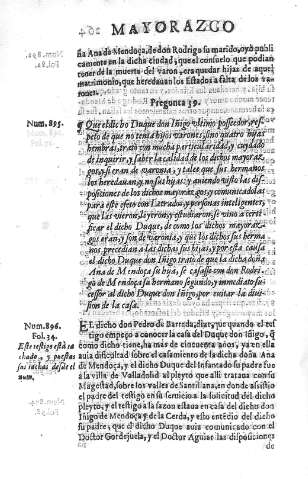 MAYORAZGO
ña Ana de Mendoça, de don Rodrigo su marido, oyó publi
camente en la dicha ciudad, que el consuelo que podian
tener de la muerte del varon, era quedar hijas de aquel
matrimonio, que heredauan los Estados a falta de los va
rones.
Pregunta 39.
Num. 895.
Que el dicho Duque don Iñigo vltimo posseedor, res
peto de que no tenia hijos varones, sino quatro hijas
hembras, trató con mucha particularidad, y cuydado
de inquirir, y saber la calidad de los dichos mayoraz
gos, si eran de varonia, y tales que sus hermanos
los heredauan, y no sus hijas: y auiendo visto las dis
posiciones de los dichos mayorazgos, y comunicadolas
para este efeto con Letrados, y personas inteligentes,
que las vieron, leyeron, y estudiaron, se vino a certi
ficar el dicho Duque, de como los dichos mayoraz
gos eran, y son de varonia, y que los dichos sus herma
nos precedian a las dichas sus hijas, y por esta causa
el dicho Duque don Iñigo trató de que la dicha doña
Ana de Mendoça su hija, se casasse con don Rodri
go de Mendoça su hermano segundo, y inmediato su
cessor al dicho Duque don Iñigo, por euitar la diuisi
on de la casa.
Num. 896.
Fol. 34.
Este testigo està ta
chado, y puestas
sus tachas desde el
num.
EL dicho don Pedro de Barreda, dize, que quando el tes
tigo empeçó a conocer la casa del Duque don Iñigo, q̃
como dicho tiene, ha mas de cincuenta años, ya en ella
auia dificultad sobre el casamiento de la dicha doña Ana
de Mendoça, y el dicho Duque del Infantado su padre fue a
la villa de Valladolid al pleyto que alli trataua con su
Magestad, sobre los valles de Santillana, en donde assistio el
padre del testigo en su seruicio la solicitud del dicho
pleyto, y el testigo a la sazon estaua en casa del dicho don
Iñigo de Mendoça y de la Cerda, y esto entendio el dicho
su padre, que el dicho Duque auia comunicado con el
Doctor Gordejuela, y el Doctor Aguiar las disposiciones
de